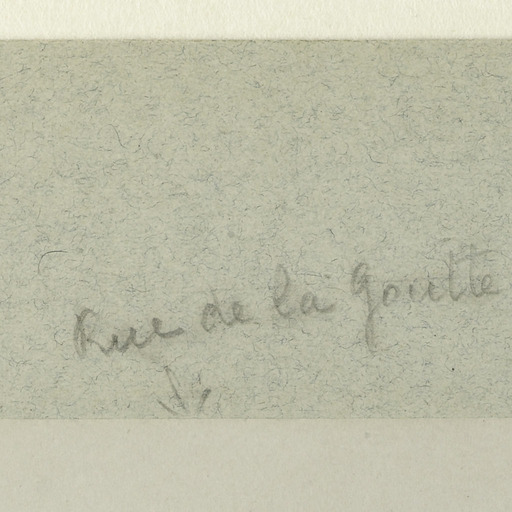 Rue de la Goutte